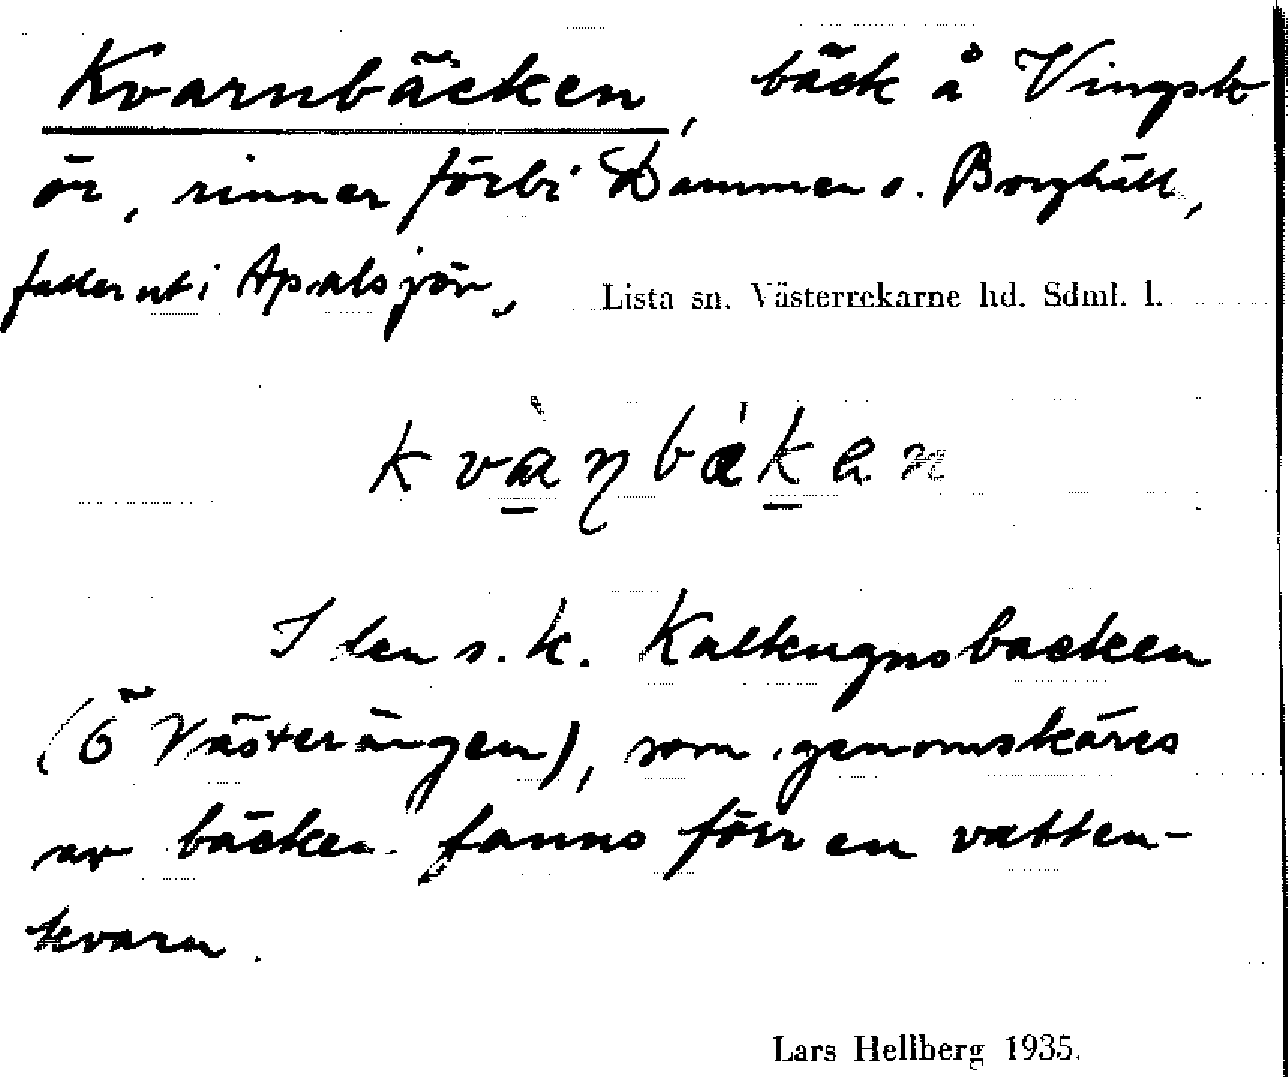 Kvarnbäcken, bäck å Vingsle
ör, rinner förbi Dammen o. Borghäll,
faller ut i Apalsjön, Lista sn. Västerrekarne hd. Sdml. l.
kvànbä́kan
I den s. k. Kalkugnsbacken
(Ö Västerängen), som genomskäres
av bäcken fanns förr en vatten-
kvarn.
Lars Hellberg 1935.